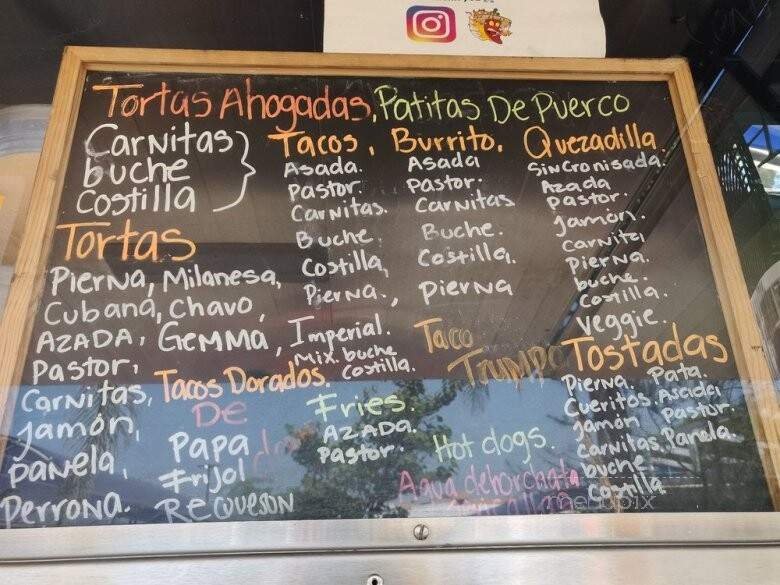 Tortas Ahogadas, Patitas De Puerco
Carnitas
buche
Costilla
Tacos,
Asada.
Pastor.
Carnitas.
Buche.
Costilla,
Pierna.,
Burrito,
Asada
Pastor.
Carnitas
Buche.
Costilla.
Pierna
Quezadilla.
Sincronisada.
Azada
Pastor.
Jamón.
Carnita
Pierna.
buche.
Costilla.
Veggie.
Tortas
Pierna, Milanesa,
Cubana, Chavo,
AZADA, GEMMA, Imperial.
Pastor, Mix. buche
Costilla.
Carnitas,
Jamón,
Panela,
Perrona.
Tacos Dorados.
De
Papa
Frijol
Requeson
Fries.
AZADA.
Pastor.
Taco
Trompo
Hot dogs.
Agua dehorchata
Tostadas
Pierna. Pata.
Cueritos. Asada
Jamón Pastor.
Carnitas. Panela.
buche
Costilla
menupix